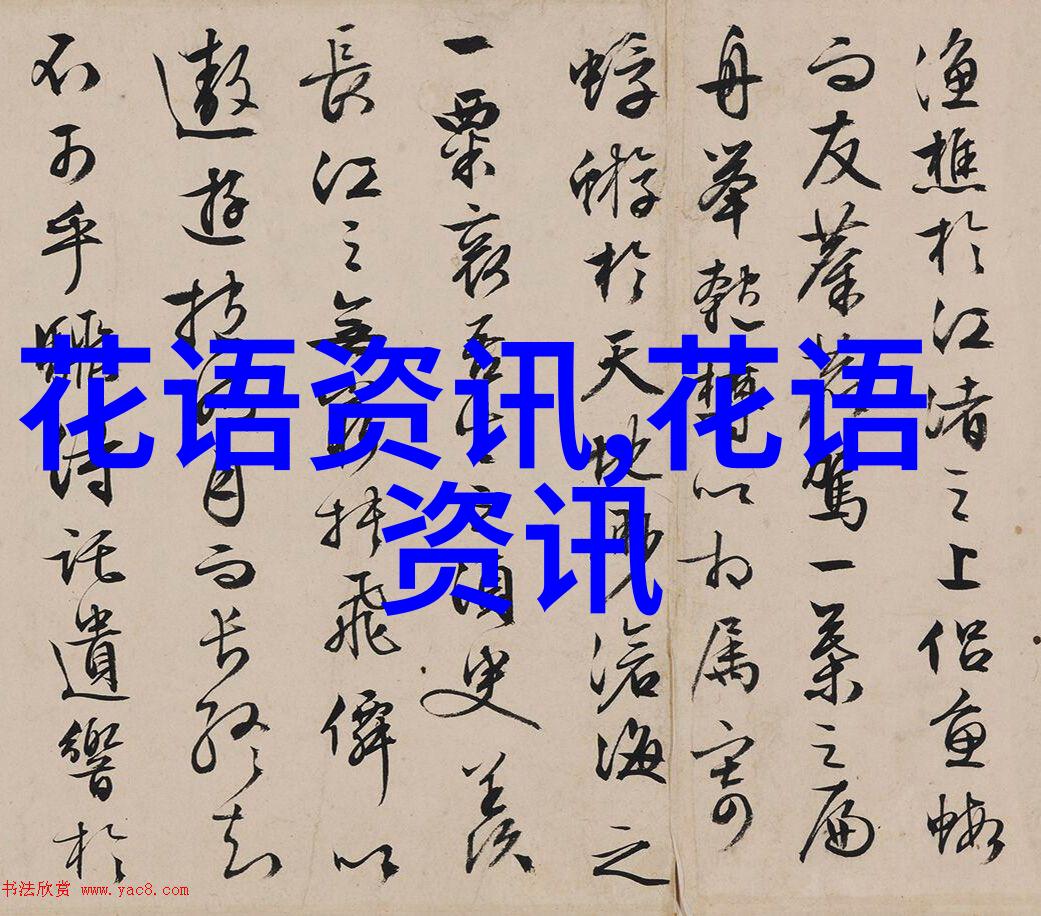 漁樵於江渚之上侶魚蝦
而友麋鹿駕一葉之扁
舟舉匏樽以相屬寄
蜉蝣於天地眇滄海之
一粟哀吾生之須臾羨
長江之無窮挾飛僊以
遨遊抱明月而長終知
不可乎驟得託遺響於
花语资讯,花语
资讯
书法欣赏 www.yac8.com